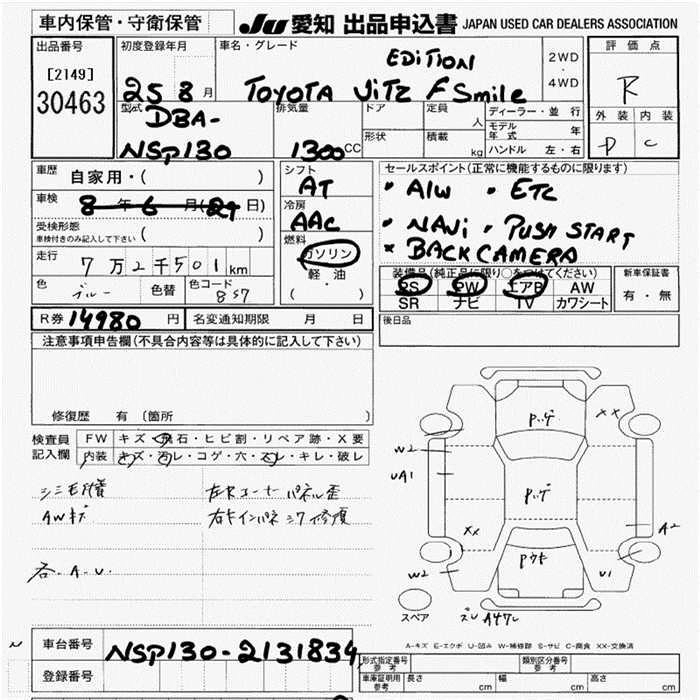 車内保管・守衛保管
JU 愛知 出品申込書 JAPAN USED CAR DEALERS ASSOCIATION
出品番号
[2149]
30463
初度登録年月
25 8月
車名・グレード
EDITION
TOYOTA VITZ F SMILE
2WD
・
4WD
評価点
R
外装 内装
D C
型式
DBA-
NSP130
排気量
1300CC
ドア
形状
定員
人
積載
kg
ディーラー・並行
モデル年式 年
ハンドル 左・右
車歴
自家用・( )
車検
8年6月(29日)
受検形態
車検付きのみ記入して下さい ( )
走行
7万2千501km
色
ブルー
色替
色コード
8S7
シフト
AT
冷房
AAC
燃料
ガソリン
軽油
( )
セールスポイント(正常に機能するものに限ります)
・A/W ・ETC
・NAVI ・PUSH START
* BACK CAMERA
装備品(純正品に限り○をつけてください)
PS PW エアB AW
SR ナビ TV カワシート
新車保証書
有・無
R券 14980円
名変通知期限 月 日
後日品
注意事項申告欄(不具合内容等は具体的に記入して下さい)
修復歴 有 〔箇所
検査員
記入欄
FW キズ・飛石・ヒビ割・リペア跡・X要
内装 キズ・汚レ・コゲ・穴・スレ・キレ・破レ
AWキズ
各.A.U.
左Rコーナーパネル歪
P.ゲ
XX
W2
UA1
P.ゲ
XX
A2
W2
U1
スペア
A-キズ E-エクボ U-凹み W-補修跡 S-サビ C-腐食 XX-交換済
車台番号
NSP130-2131834
登録番号
形式指定番号
参考
類別区分番号
参考
車庫証明用
参考
長さ cm
幅 cm
高さ cm